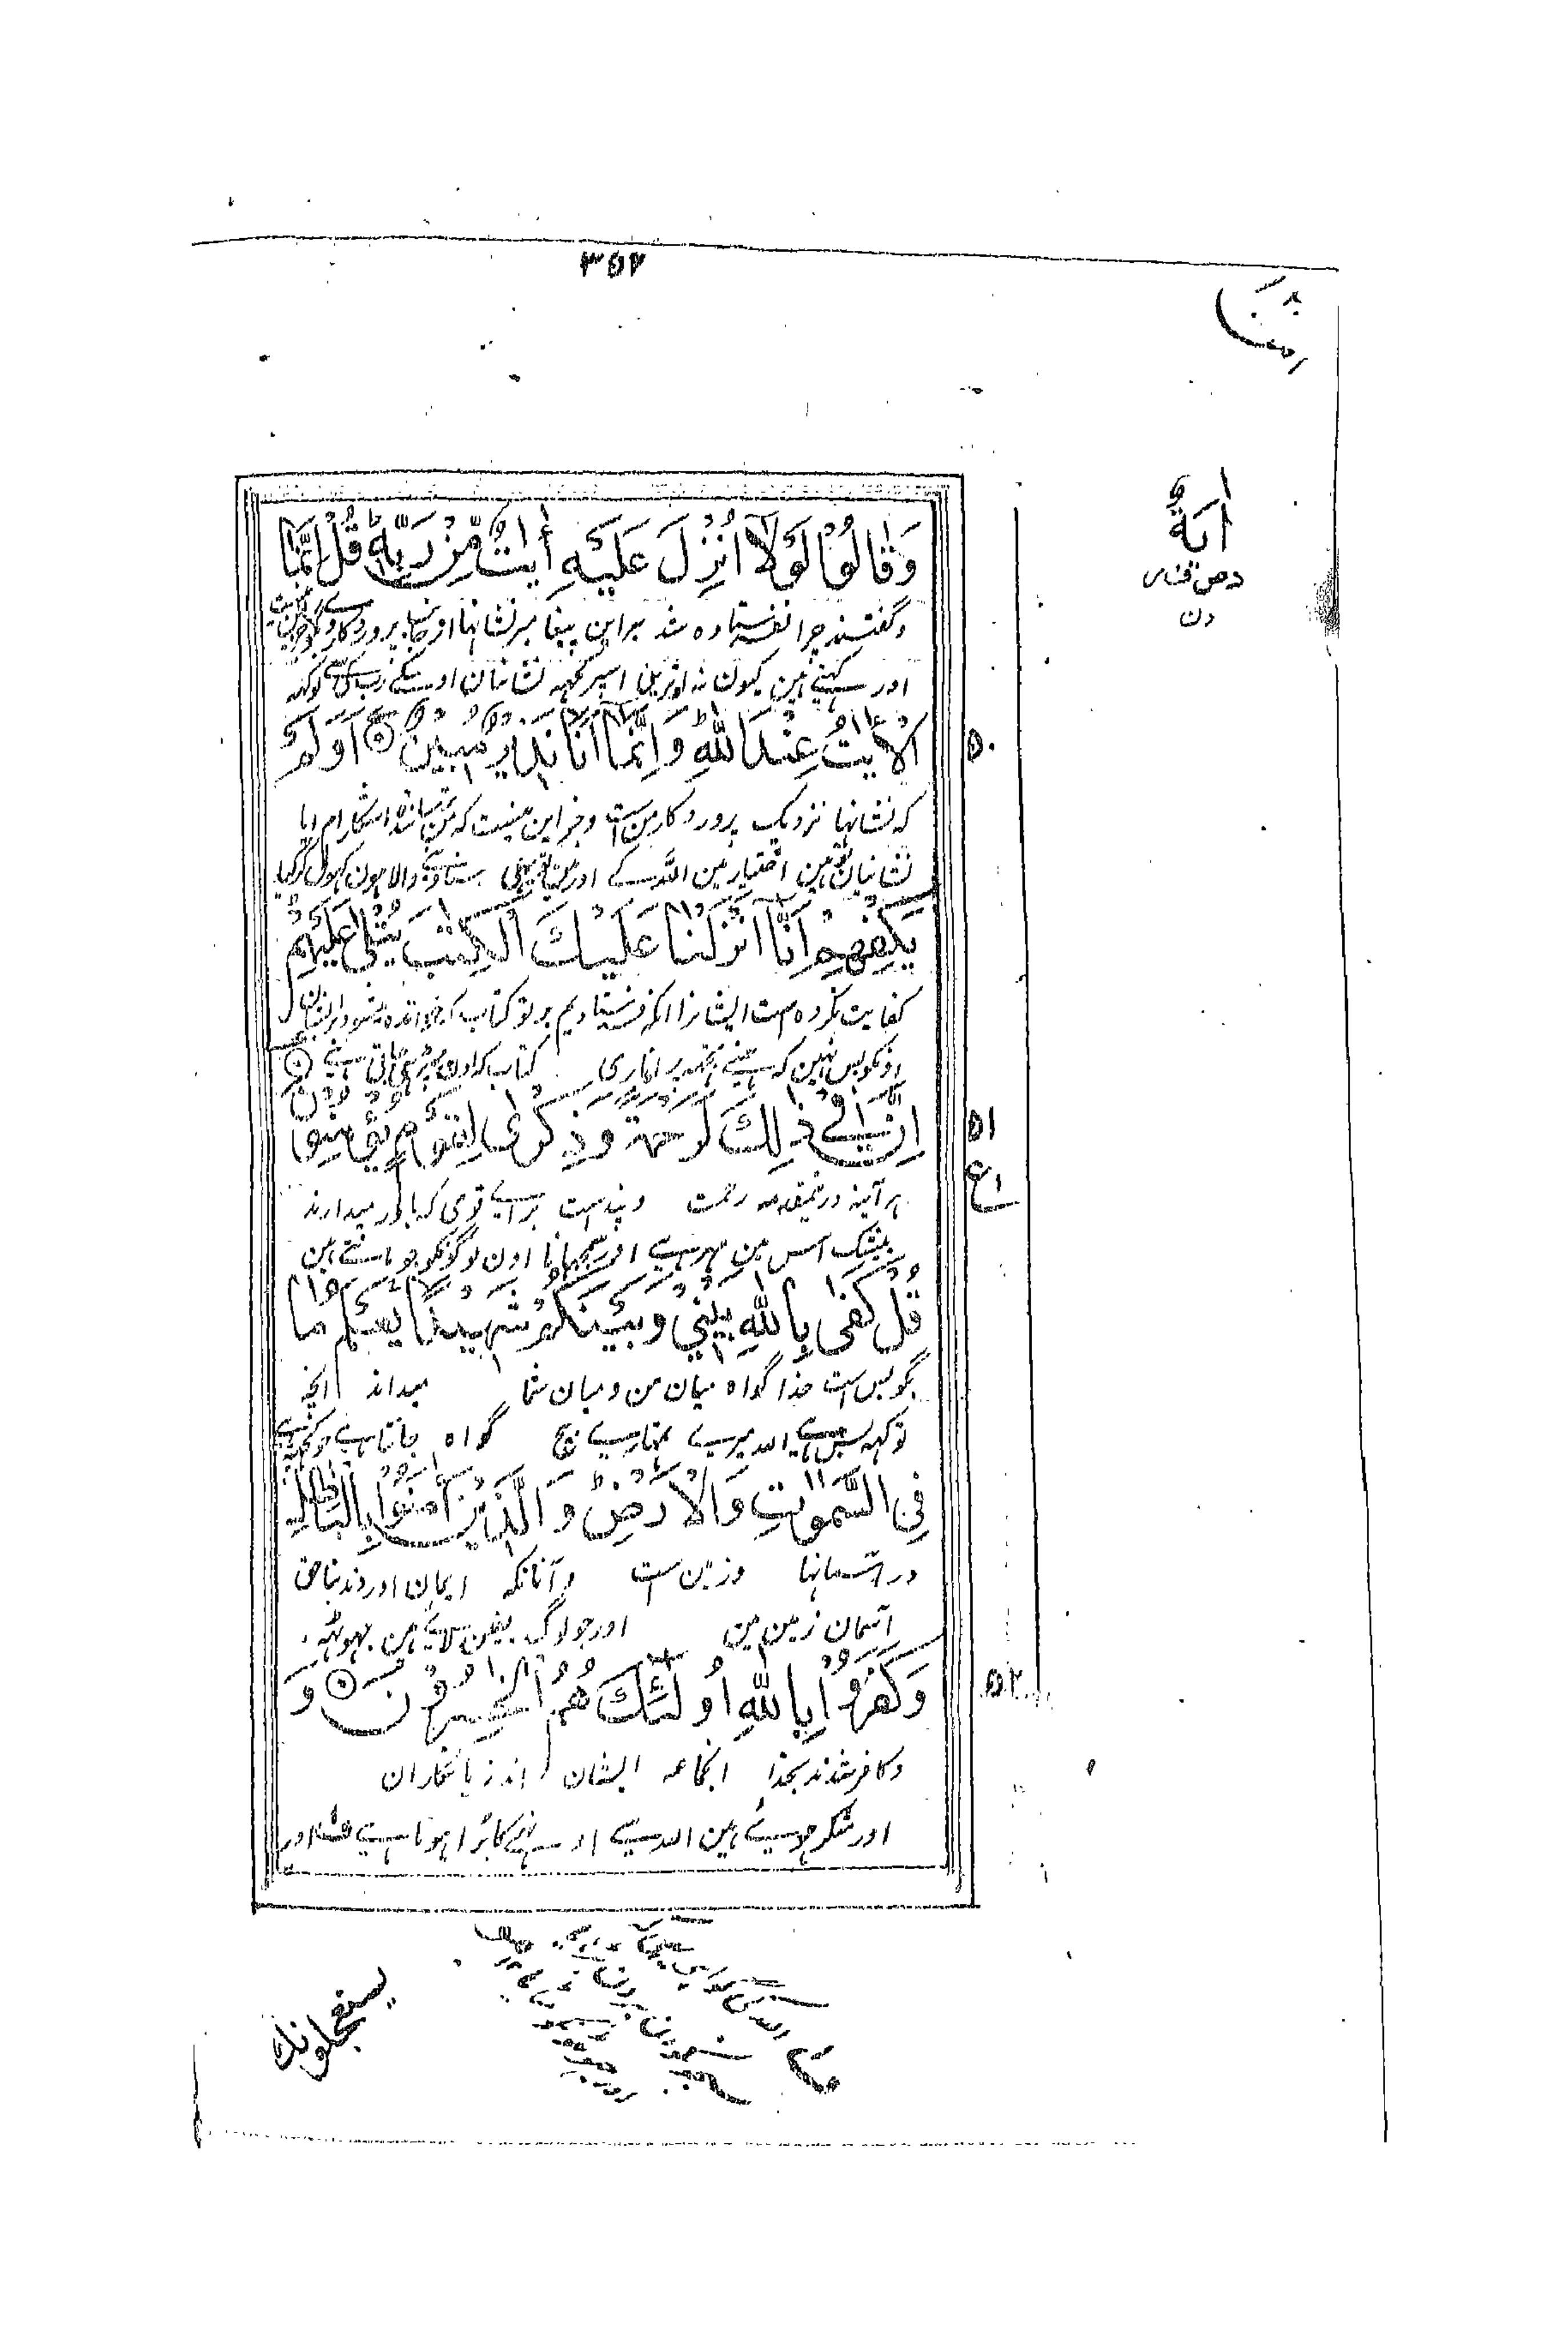 ۳۵۲
اٰيَةٌ
وَقَالُوْا لَوْلَآ اُنْزِلَ عَلَيْهِ اٰيٰتٌ مِّنْ رَّبِّهٖ قُلْ اِنَّمَا
و گفتند چرا نفرستاده شد براین پیغامبر نشانها از جانب پروردگار وی بگو جز این نیست
اور کہتے ہین کیون نہ اوترین اسپر کچهہ نشانیان اوسکے رب سے توکہہ
الْاٰيٰتُ عِنْدَ اللّٰهِ وَاِنَّمَآ اَنَا نَذِيْرٌ مُّبِيْنٌ ۝ اَوَلَمْ
۵۰
که نشانها نزدیک پروردگار من است و جز این نیست که من ترساننده آشکارم ایا
نشانیان تو ہین اختیار مین اللہ کے اور مین تو یہی سنادینے والا ہون کہول کر کیا
يَكْفِهِمْ اَنَّآ اَنْزَلْنَا عَلَيْكَ الْكِتٰبَ يُتْلٰى عَلَيْهِمْ
کفایت نکرده است ایشانرا انکه فرستادیم بر تو کتاب که خوانده میشود بر ایشان
اونکو بس نہین کہ ہمنے تجہہ پر اتاری کتاب کہ اون پر پڑہی جاتی ہے
اِنَّ فِيْ ذٰلِكَ لَرَحْمَةً وَّذِكْرٰى لِقَوْمٍ يُّؤْمِنُوْنَ ۝
۵۱
ع
ہر آئینہ در رحمت و پند است برای قومی که باور میدارند
بیشک اس مین مہر ہے اور سمجہانا اون لوگونکو جو مانتے ہین
قُلْ كَفٰى بِاللّٰهِ بَيْنِيْ وَبَيْنَكُمْ شَهِيْدًا يَعْلَمُ مَا
بگو بس است خدا گواه میان من و میان شما میداند انچہ
تو کہہ بس ہے اللہ میرے تمہارے بیچ گواہ جانتا ہے جو کچهہ ہے
فِي السَّمٰوٰتِ وَالْاَرْضِ وَالَّذِيْنَ اٰمَنُوْا بِالْبَاطِلِ
در آسمانها و زمین است و آنانکه ایمان اوردند بناحق
آسمان زمین مین اور جو لوگ یقین لائے ہین جہوٹہہ
وَكَفَرُوْا بِاللّٰهِ اُولٰٓئِكَ هُمُ الْخٰسِرُوْنَ ۝ وَ
۵۲
و کافر شدند بخدا انجماعہ ایشان اند زیانکاران
اور منکر ہوئے ہین اللہ سے اور
يستعجلونك